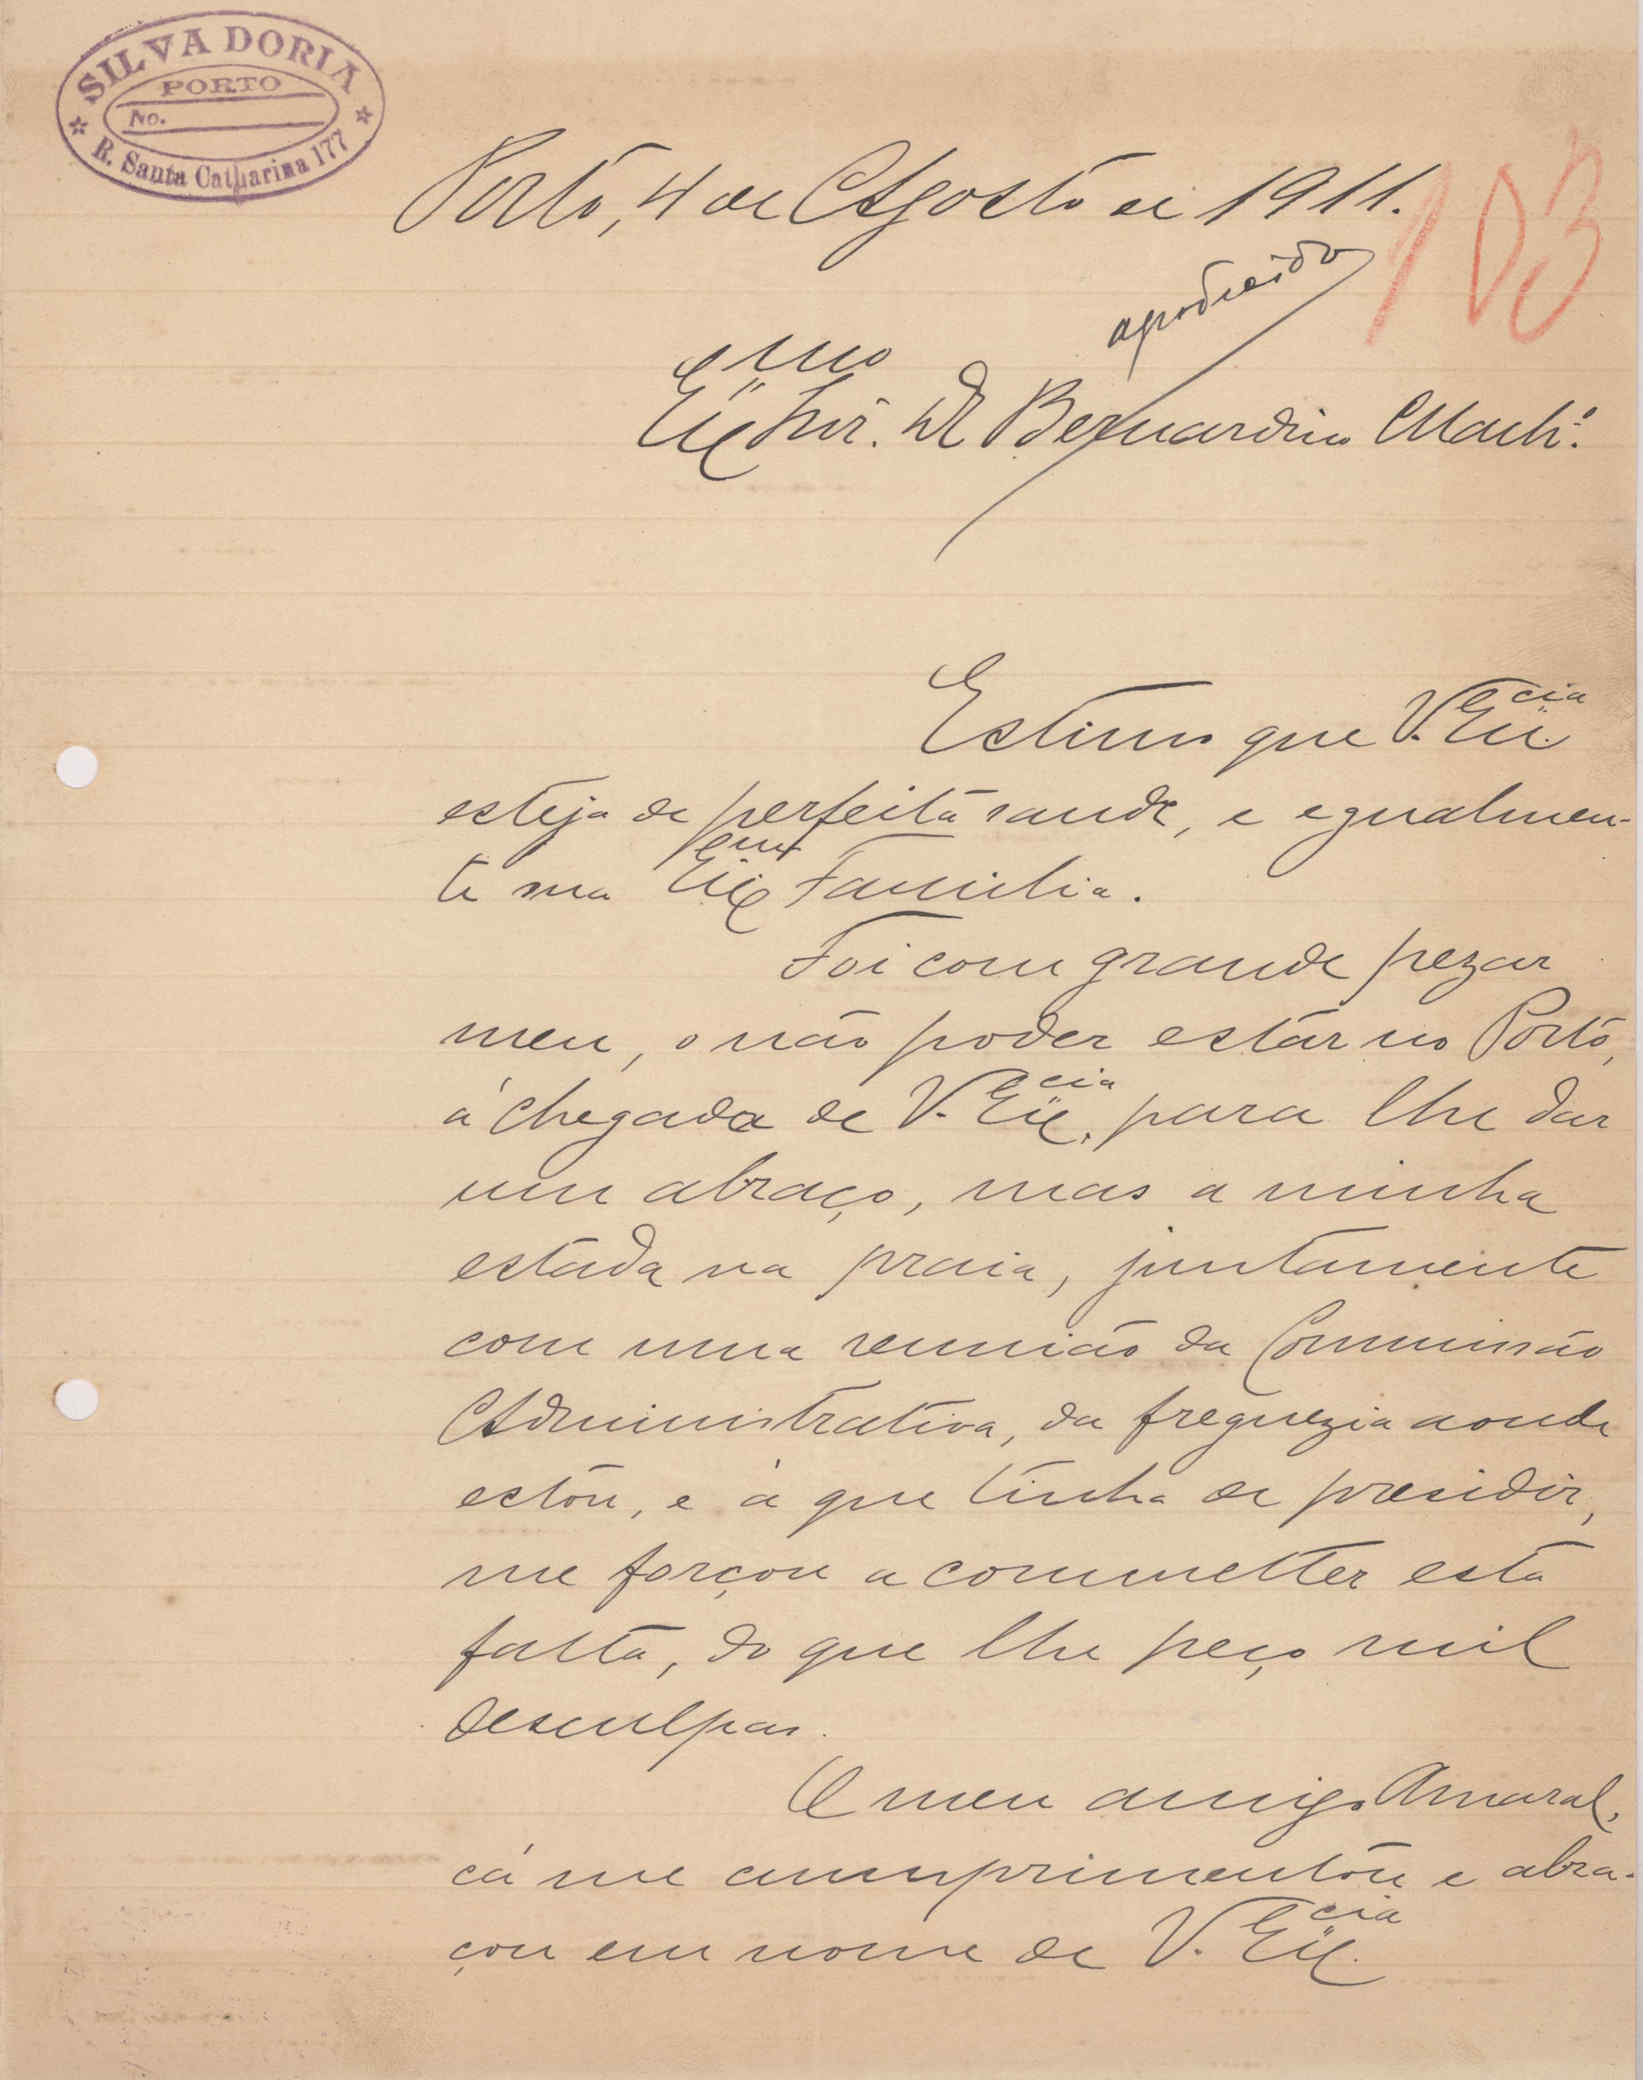 SILVA DORIA
PORTO
No.
R. Santa Catharina 177
Porto, 4 de Agosto de 1911.
103
Exmo Snr. Dr Bernardino Machº.
Estimo que V. Excia
esteja de perfeita saude, e egualmen-
te sua Exma Familia.
Foi com grande pezar
meu, o não poder estar no Porto,
á chegada de V. Excia, para lhe dar
um abraço, mas a minha
estada na praia, juntamente
com uma reunião da Commissão
Administrativa, da freguezia aonde
estou, e á que tinha de presidir,
me forçou a commetter esta
falta, do que lhe peço mil
desculpas.
O meu amigo Amaral,
cá me cumprimentou e abra-
çou em nome de V. Excia.